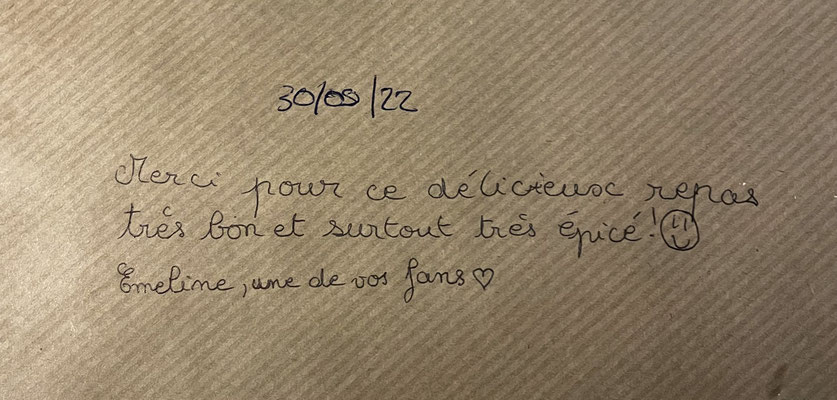 30/09/22
Merci pour ce délicieux repas
très bon et surtout très épicé!
Emeline, une de vos fans♡